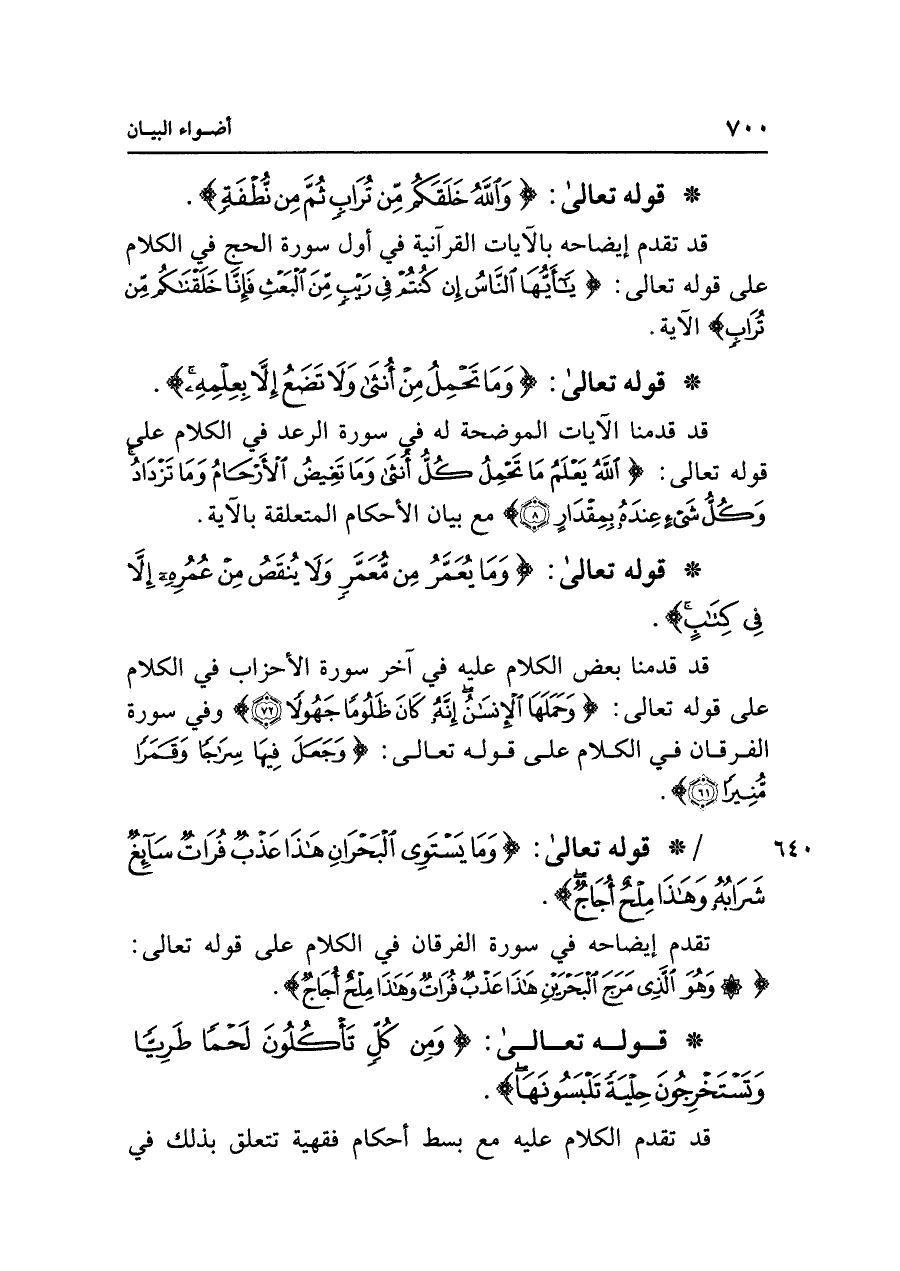 ٧٠٠ أضـواء البيـان
* قوله تعالىٰ: ﴿ وَٱللَّهُ خَلَقَكُم مِّن تُرَابٍ ثُمَّ مِن نُّطْفَةٍ ﴾ .
قد تقدم إيضاحه بالآيات القرآنية في أول سورة الحج في الكلام
على قوله تعالى: ﴿ يَٰٓأَيُّهَا ٱلنَّاسُ إِن كُنتُمْ فِى رَيْبٍ مِّنَ ٱلْبَعْثِ فَإِنَّا خَلَقْنَٰكُم مِّن
تُرَابٍ ﴾ الآية .
* قوله تعالىٰ: ﴿ وَمَا تَحْمِلُ مِنْ أُنثَىٰ وَلَا تَضَعُ إِلَّا بِعِلْمِهِۦۚ ﴾ .
قد قدمنا الآيات الموضحة له في سورة الرعد في الكلام على
قوله تعالى: ﴿ ٱللَّهُ يَعْلَمُ مَا تَحْمِلُ كُلُّ أُنثَىٰ وَمَا تَغِيضُ ٱلْأَرْحَامُ وَمَا تَزْدَادُۚ
وَكُلُّ شَىْءٍ عِندَهُۥ بِمِقْدَارٍ ٨ ﴾ مع بيان الأحكام المتعلقة بالآية .
* قوله تعالىٰ: ﴿ وَمَا يُعَمَّرُ مِن مُّعَمَّرٍ وَلَا يُنقَصُ مِنْ عُمُرِهِۦٓ إِلَّا
فِى كِتَٰبٍۚ ﴾ .
قد قدمنا بعض الكلام عليه في آخر سورة الأحزاب في الكلام
على قوله تعالى: ﴿ وَحَمَلَهَا ٱلْإِنسَٰنُۖ إِنَّهُۥ كَانَ ظَلُومًا جَهُولًا ٧٢ ﴾ وفي سورة
الفـرقـان فـي الكـلام علـى قـولـه تعـالـى: ﴿ وَجَعَلَ فِيهَا سِرَٰجًا وَقَمَرًا
مُّنِيرًا ٦١ ﴾ .
٦٤٠ / * قوله تعالىٰ: ﴿ وَمَا يَسْتَوِى ٱلْبَحْرَانِ هَٰذَا عَذْبٌ فُرَاتٌ سَآئِغٌ
شَرَابُهُۥ وَهَٰذَا مِلْحٌ أُجَاجٌۖ ﴾ .
تقدم إيضاحه في سورة الفرقان في الكلام على قوله تعالى:
﴿ ۞ وَهُوَ ٱلَّذِى مَرَجَ ٱلْبَحْرَيْنِ هَٰذَا عَذْبٌ فُرَاتٌ وَهَٰذَا مِلْحٌ أُجَاجٌ ﴾ .
* قـولـه تعـالـىٰ: ﴿ وَمِن كُلٍّ تَأْكُلُونَ لَحْمًا طَرِيًّا
وَتَسْتَخْرِجُونَ حِلْيَةً تَلْبَسُونَهَاۖ ﴾ .
قد تقدم الكلام عليه مع بسط أحكام فقهية تتعلق بذلك في